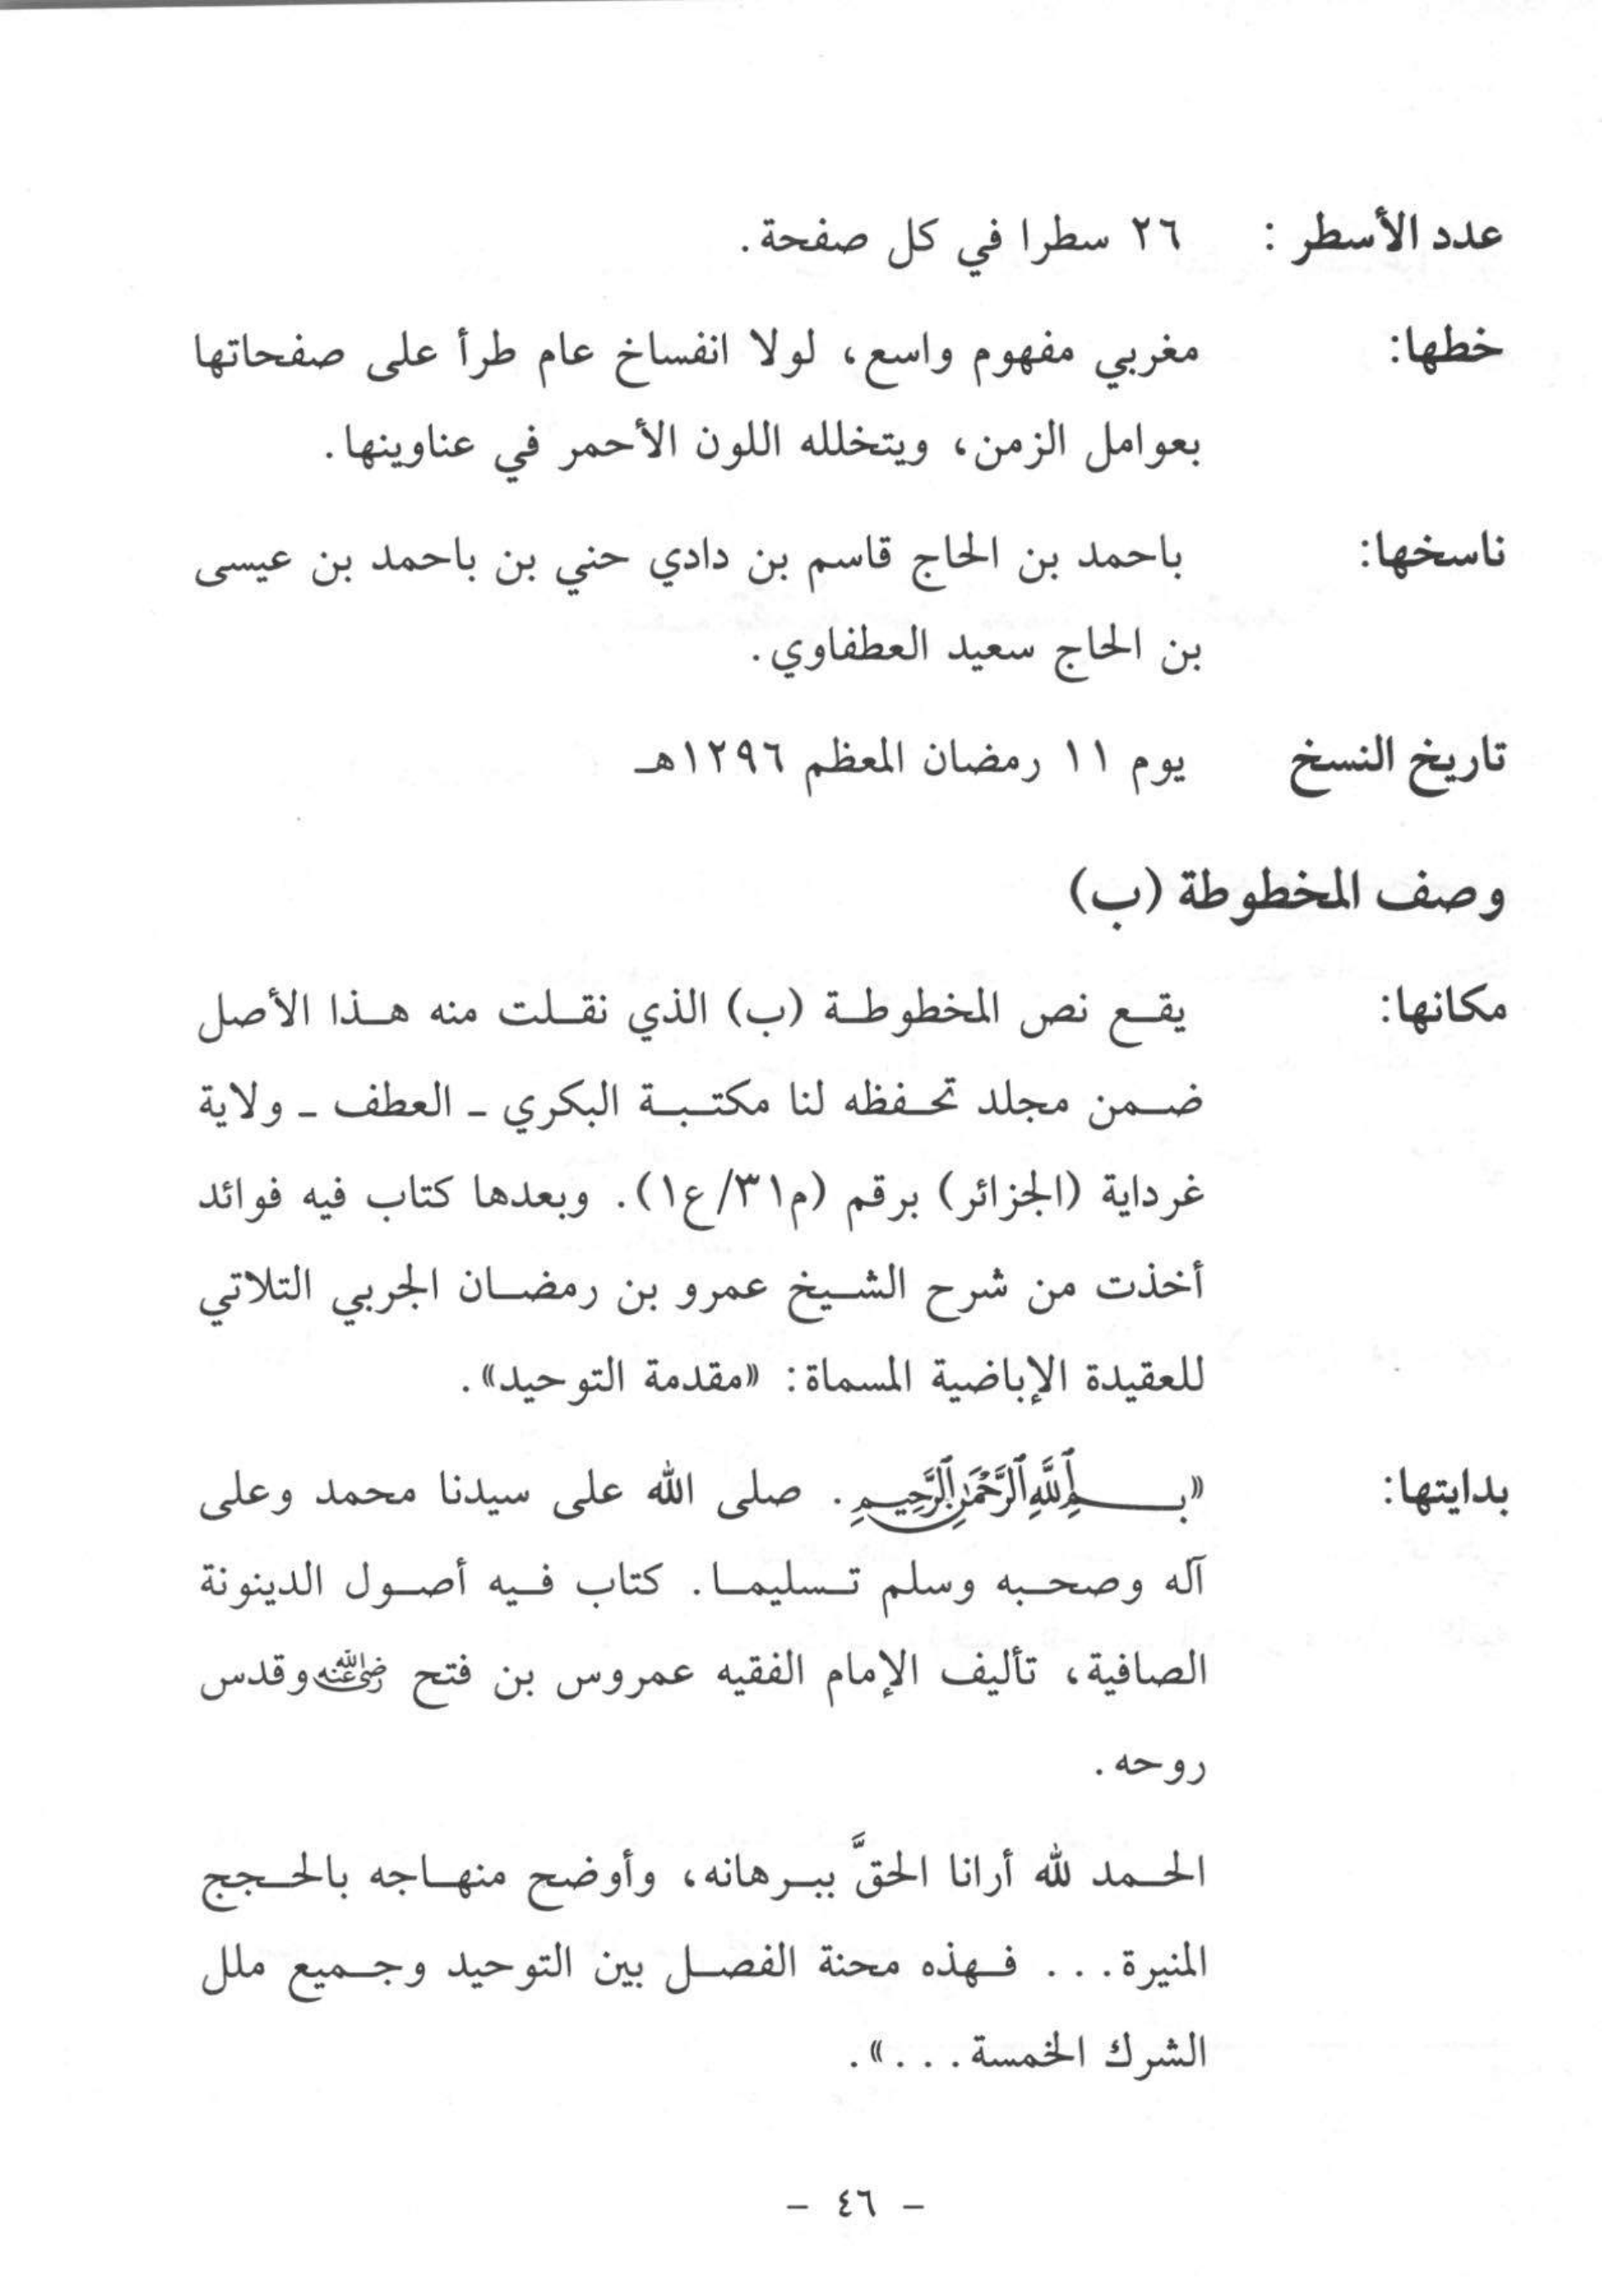 عدد الأسطر : ٢٦ سطرا في كل صفحة.
خطها: مغربي مفهوم واسع، لولا انفساخ عام طرأ على صفحاتها
بعوامل الزمن، ويتخلله اللون الأحمر في عناوينها.
ناسخها: باحمد بن الحاج قاسم بن دادي حني بن باحمد بن عيسى
بن الحاج سعيد العطفاوي.
تاريخ النسخ يوم ١١ رمضان المعظم ١٢٩٦هـ
وصف المخطوطة (ب)
مكانها: يقع نص المخطوطة (ب) الذي نقلت منه هذا الأصل
ضمن مجلد تحفظه لنا مكتبة البكري ـ العطف ـ ولاية
غرداية (الجزائر) برقم (م٣١/ع١). وبعدها كتاب فيه فوائد
أخذت من شرح الشيخ عمرو بن رمضان الجربي التلاتي
للعقيدة الإباضية المسماة: «مقدمة التوحيد».
بدايتها: «بِسْمِ ٱللَّهِ ٱلرَّحْمَٰنِ ٱلرَّحِيمِ. صلى الله على سيدنا محمد وعلى
آله وصحبه وسلم تسليما. كتاب فيه أصول الدينونة
الصافية، تأليف الإمام الفقيه عمروس بن فتح رضي الله عنه وقدس
روحه.
الحمد لله أرانا الحقَّ ببرهانه، وأوضح منهاجه بالحجج
المنيرة... فهذه محنة الفصل بين التوحيد وجميع ملل
الشرك الخمسة...».
- ٤٦ -